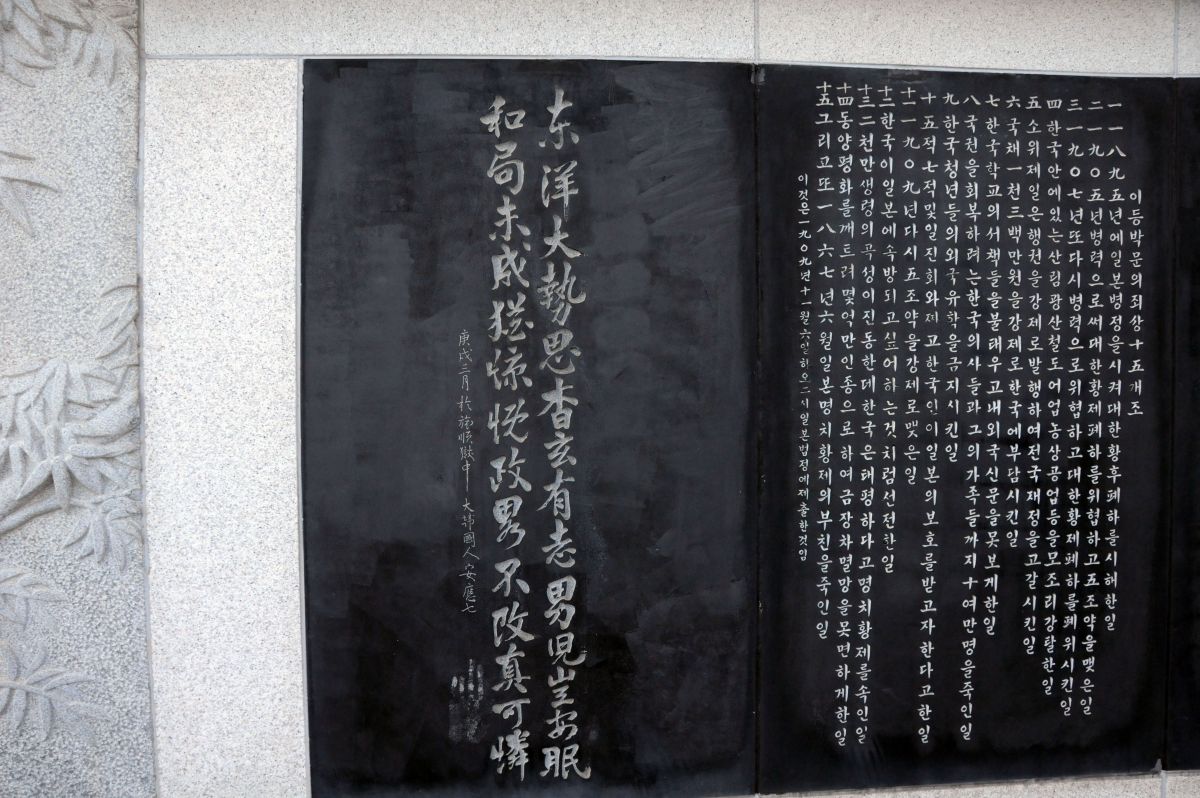 이등박문의죄상十五개조
一一八九五년에일본병정을시켜대한황후폐하를시해한일
二一九〇五년병력으로써대한황제폐하를위협하고五조약을맺은일
三一九〇七년또다시병력으로위협하고대한황제폐하를폐위시킨일
四한국안에있는산림광산철도어업농상공업등을모조리강탈한일
五소위제일은행권을강제로발행하여전국재정을고갈시킨일
六국채一천三백만원을강제로한국에부담시킨일
七한국학교의서책들을불태우고내외국신문을못보게한일
八국권을회복하려는한국의사들과그의가족들까지十여만명을죽인일
九한국청년들의외국유학을금지시킨일
十五적七적및일진회와제고한국인이일본의보호를받고자한다고한일
十一一九〇九년다시五조약을강제로맺은일
十二한국이일본에속방되고싶어하는것처럼선전한일
十三二천만생령의곡성이진동한데한국은태평하다고명치황제를속인일
十四동양평화를깨트려몇억만인종으로하여금장차멸망을못면하게한일
十五그리고또一八六七년六월일본명치황제의부친을죽인일
이것은一九〇九년十一월六일하오二시일본법정에제출한것임
东洋大勢思杳玄有志男児岂安眠
和局未成猶慷慨政畧不改真可憐
庚戌三月 於旅順獄中 大韓國人安應七